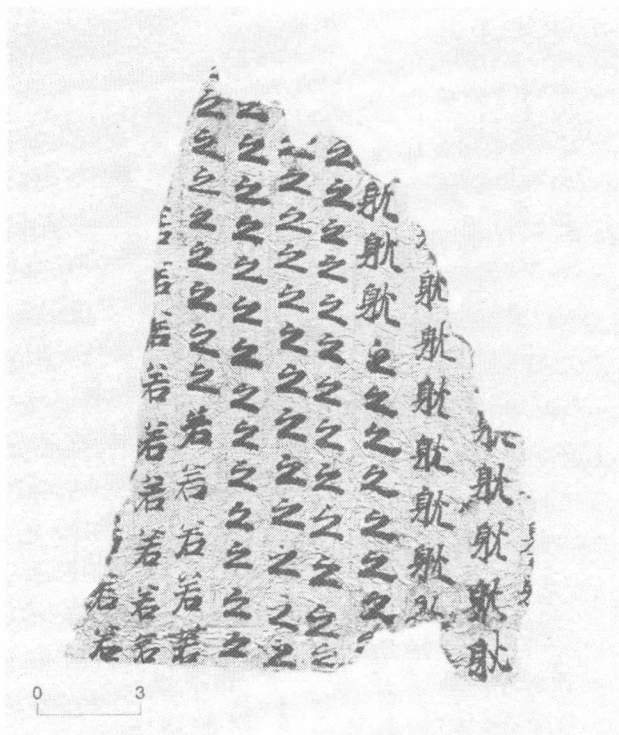 躭躭躭躭躭
躭躭躭躭躭躭
躭躭躭之之之之之之之
之之之之之之之之之之之之之
之之之之之之之之之之之之
之之之之之之之之之之之之之之
之之之之之之之之若若若若若
若若若若若若若
若若
0 3